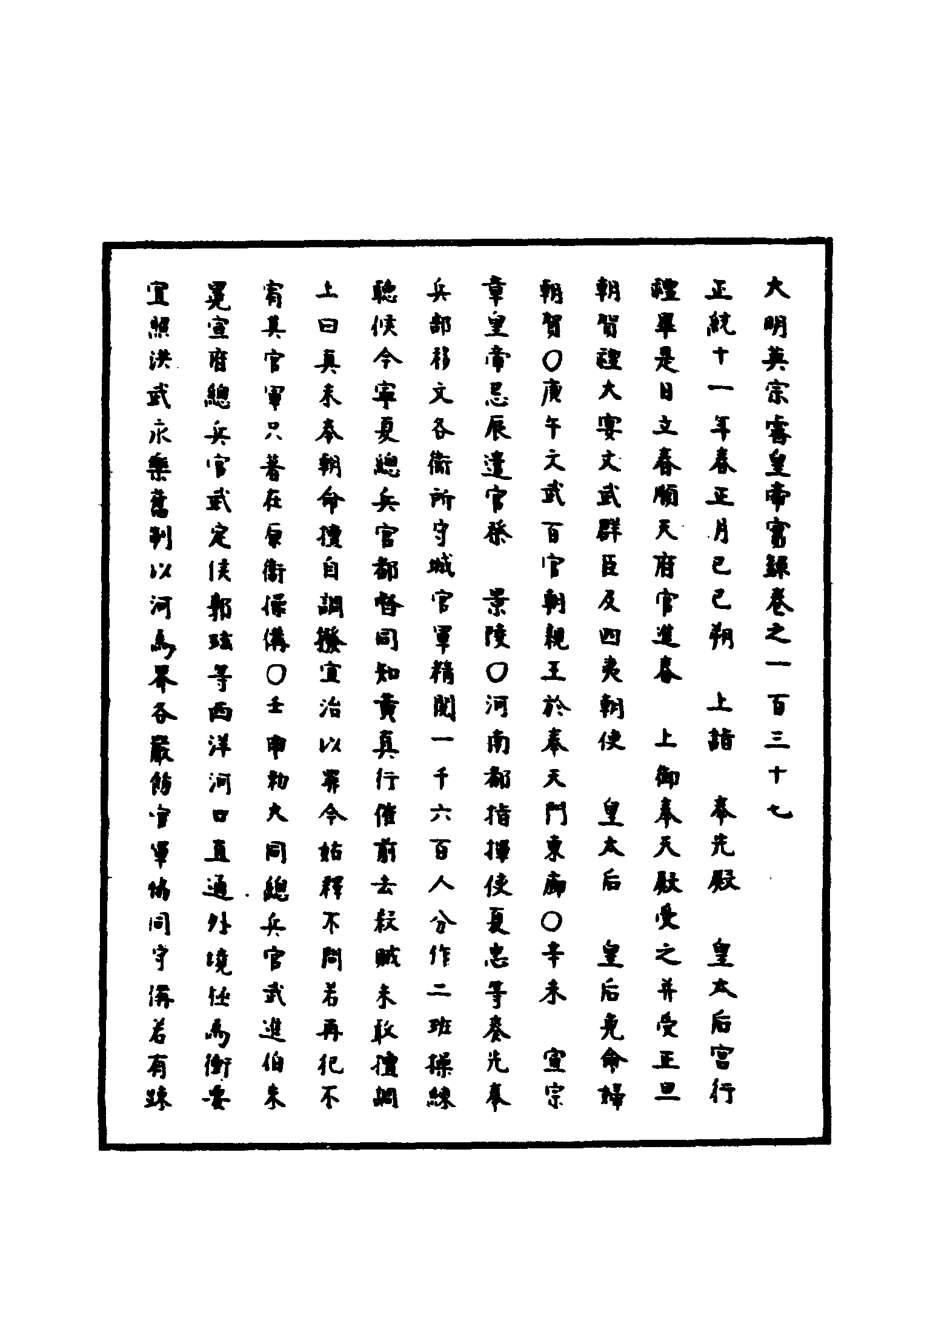 大明英宗睿皇帝實錄卷之一百三十七
正統十一年春正月己巳朔　上詣　奉先殿　皇太后宮行
禮畢是日立春順天府官進春　上御奉天殿受之并受正旦
朝賀禮大宴文武群臣及四夷朝使　皇太后　皇后免命婦
朝賀○庚午文武百官朝親王於奉天門東廊○辛未　宣宗
章皇帝忌辰遣官祭　景陵○河南都指揮使夏忠等奏先奉
兵部移文各衛所守城官軍精閱一千六百人分作二班操練
聽候今寧夏總兵官都督同知黃真行催前去殺賊未敢擅調
上曰真未奉朝命擅自調撥宜治以罪今姑釋不問若再犯不
宥其官軍只著在原衛操備○壬申勑大同總兵官武進伯朱
冕宣府總兵官武定侯郭玹等西洋河口直通外境任馬衝要
宜照洪武永樂舊制以河為界各嚴飭官軍協同守備若有踈